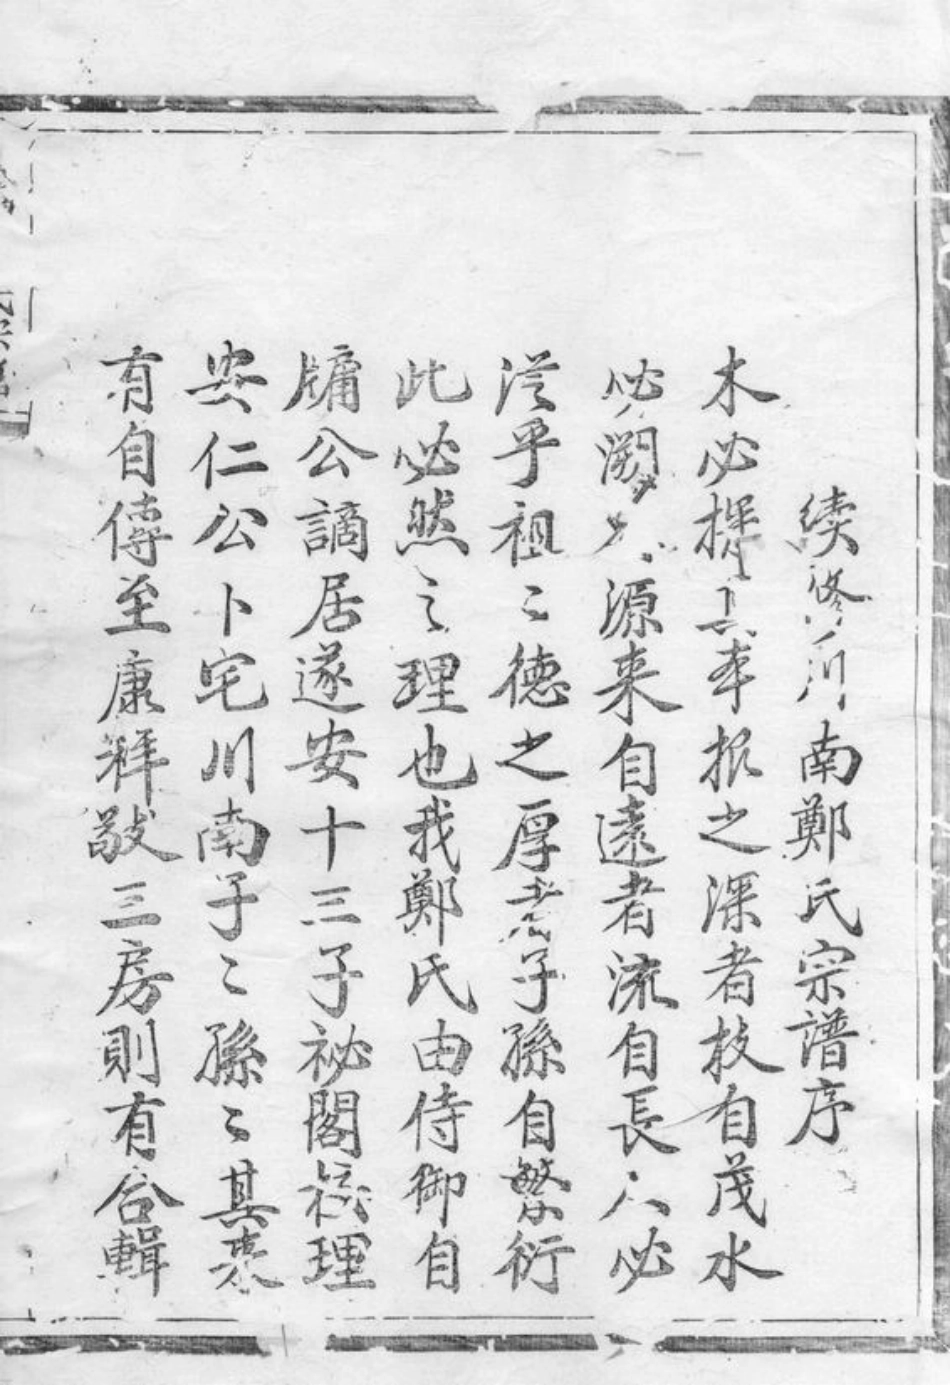 續修川南鄭氏宗譜序
木必探其本报之深者枝自茂水
必溯源来自遠者流自長人必
従乎祖〻德之厚者子孫自繁衍
此必然之理也我鄭氏由侍御自
牗公謫居遂安十三子祕閣校理
安仁公卜宅川南子〻孫〻其来
有自傳至康祥敭三房則有合輯